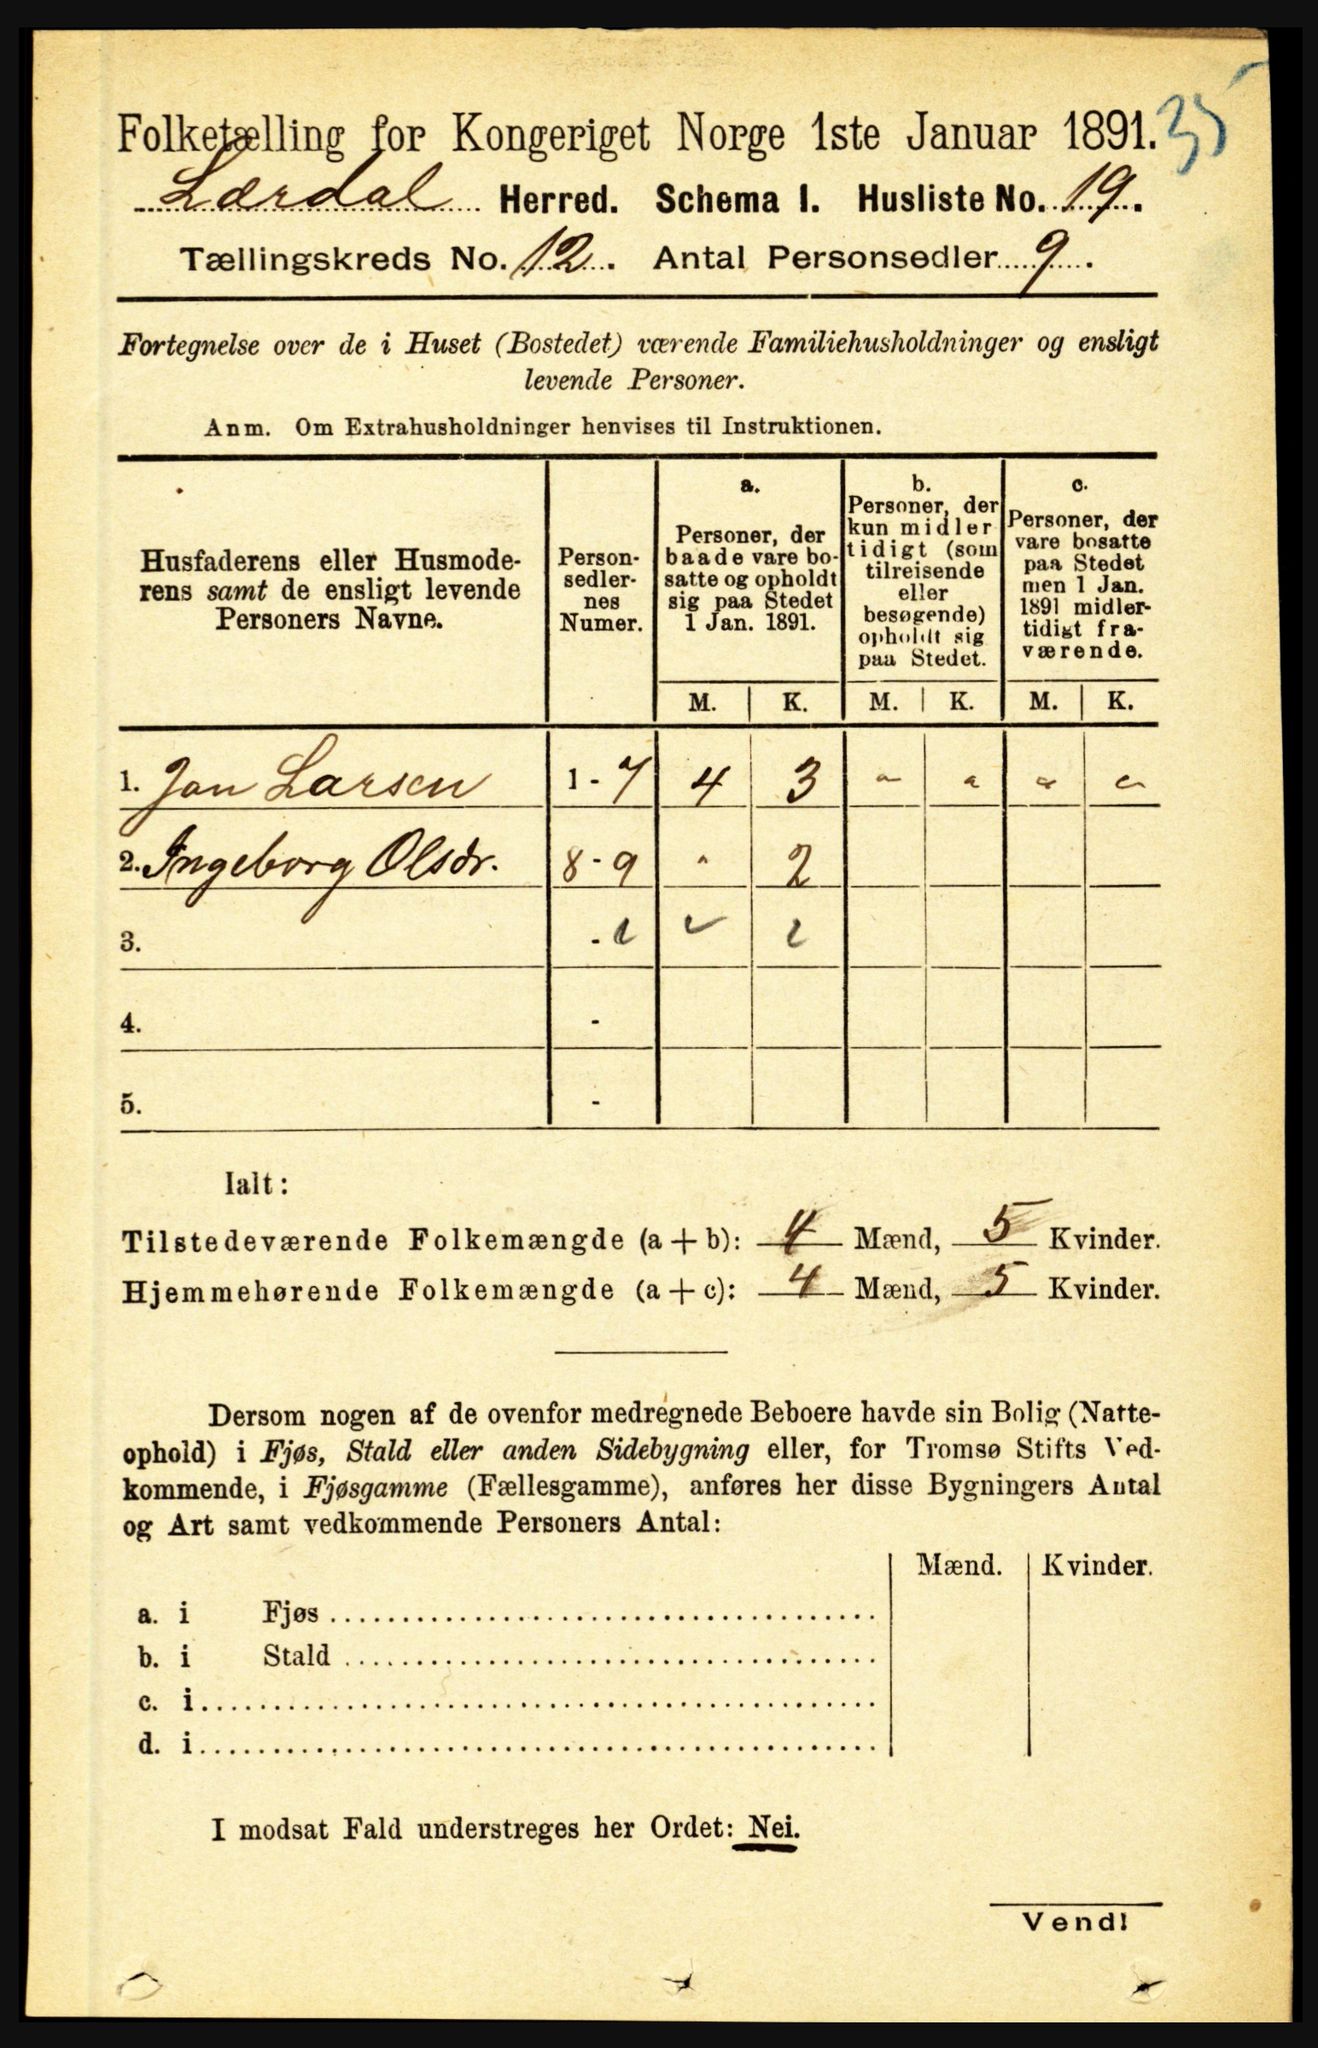 35
Folketælling for Kongeriget Norge 1ste Januar 1891.
Lærdal Herred. Schema I. Husliste No. 19.
Tællingskreds No. 12. Antal Personsedler 9.
Fortegnelse over de i Huset (Bostedet) værende Familiehusholdninger og ensligt
levende Personer.
Anm. Om Extrahusholdninger henvises til Instruktionen.
Husfaderens eller Husmode-
rens samt de ensligt levende
Personers Navne.
Person-
sedler-
nes
Numer.
a.
Personer, der
baade vare bo-
satte og opholdt
sig paa Stedet
1 Jan. 1891.
b.
Personer, der
kun midler
tidigt (som
tilreisende
eller
besøgende)
opholdt sig
paa Stedet.
c.
Personer, der
vare bosatte
paa Stedet
men 1 Jan.
1891 midler-
tidigt fra-
værende.
M. K. M. K. M. K.
1. Jan Larsen 1 - 7 4 3 " " " "
2. Ingeborg Olsdr. 8 - 9 " 2
3. - 2 2
4. -
5. -
Ialt:
Tilstedeværende Folkemængde (a + b): 4 Mænd, 5 Kvinder.
Hjemmehørende Folkemængde (a + c): 4 Mænd, 5 Kvinder.
Dersom nogen af de ovenfor medregnede Beboere havde sin Bolig (Natte-
ophold) i Fjøs, Stald eller anden Sidebygning eller, for Tromsø Stifts Ved-
kommende, i Fjøsgamme (Fællesgamme), anføres her disse Bygningers Antal
og Art samt vedkommende Personers Antal:
Mænd. Kvinder.
a. i Fjøs
b. i Stald
c. i
d. i
I modsat Fald understreges her Ordet: Nei.
Vend!